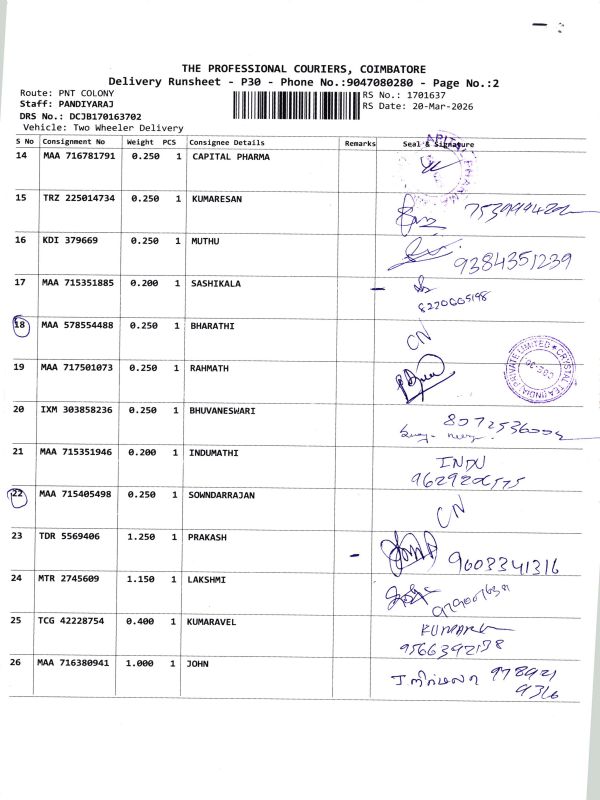 THE PROFESSIONAL COURIERS, COIMBATORE
Delivery Runsheet - P30 - Phone No.:9047080280 - Page No.:2
Route: PNT COLONY
Staff: PANDIYARAJ
DRS No.: DCJB170163702
Vehicle: Two Wheeler Delivery
RS No.: 1701637
RS Date: 20-Mar-2026
S No Consignment No Weight PCS Consignee Details Remarks Seal & Signature
14 MAA 716781791 0.250 1 CAPITAL PHARMA
15 TRZ 225014734 0.250 1 KUMARESAN
16 KDI 379669 0.250 1 MUTHU 9384351239
17 MAA 715351885 0.200 1 SASHIKALA 8220005198
18 MAA 578554488 0.250 1 BHARATHI CN
19 MAA 717501073 0.250 1 RAHMATH
CRYSTAL TEA (INDIA) PRIVATE LIMITED
20 IXM 303858236 0.250 1 BHUVANESWARI
21 MAA 715351946 0.200 1 INDUMATHI INDU
22 MAA 715405498 0.250 1 SOWNDARRAJAN CN
23 TDR 5569406 1.250 1 PRAKASH 9603341316
24 MTR 2745609 1.150 1 LAKSHMI
25 TCG 42228754 0.400 1 KUMARAVEL
9566392178
26 MAA 716380941 1.000 1 JOHN 978921
9316